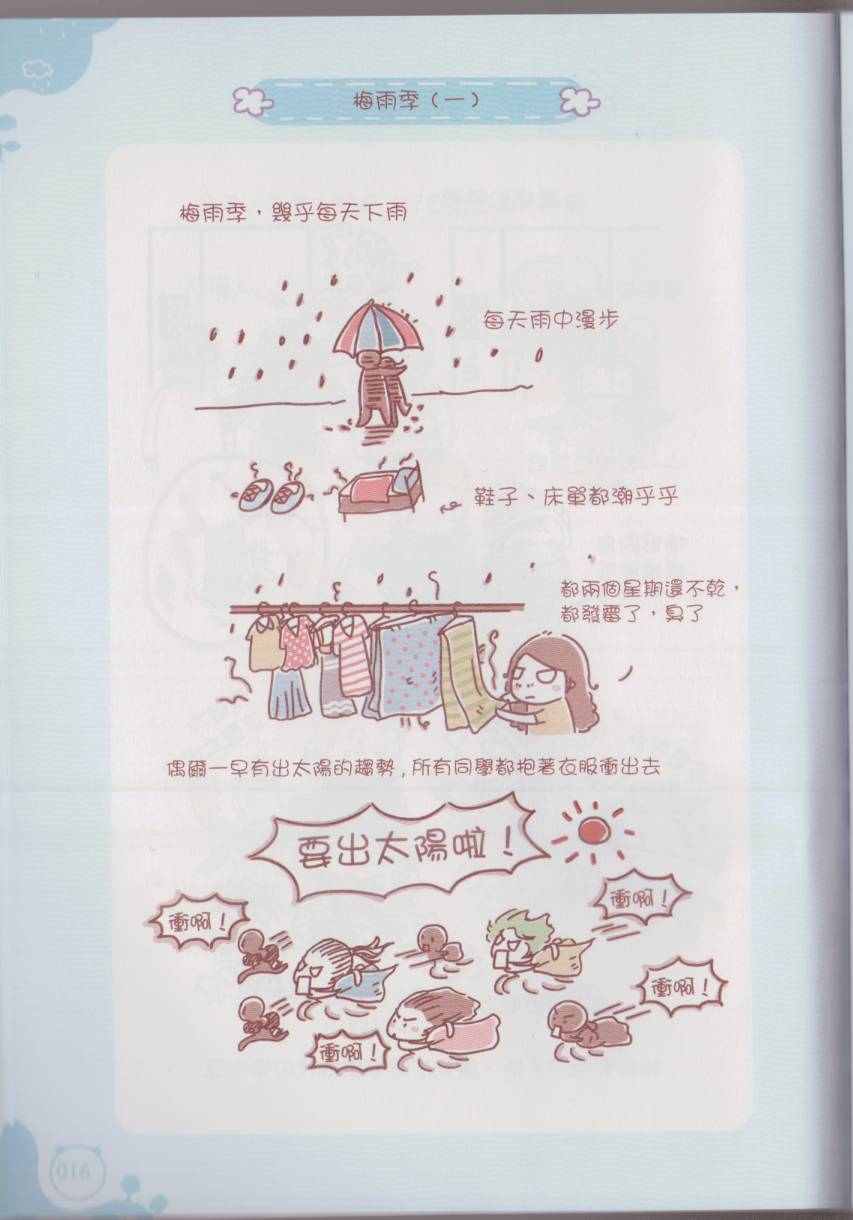 梅雨季（一）
梅雨季，幾乎每天下雨
每天雨中漫步
鞋子、床單都潮乎乎
都兩個星期還不乾，
都發霉了，臭了
偶爾一早有出太陽的趨勢，所有同學都抱著衣服衝出去
要出太陽啦！
衝啊！
衝啊！
衝啊！
衝啊！
016